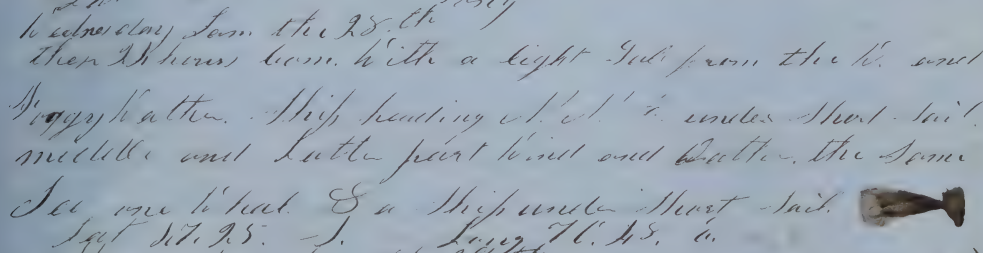 Wednesday Jan the 28th
thes 24 hours com. With a light Gale from the W. and
Foggy Weather. Ship heading N. N. under Short Sail.
middle and Latter part Wind and Weather the Same
See one Whal & a Ship under Short Sail.
Lat 47.25. S. Long 76.48.